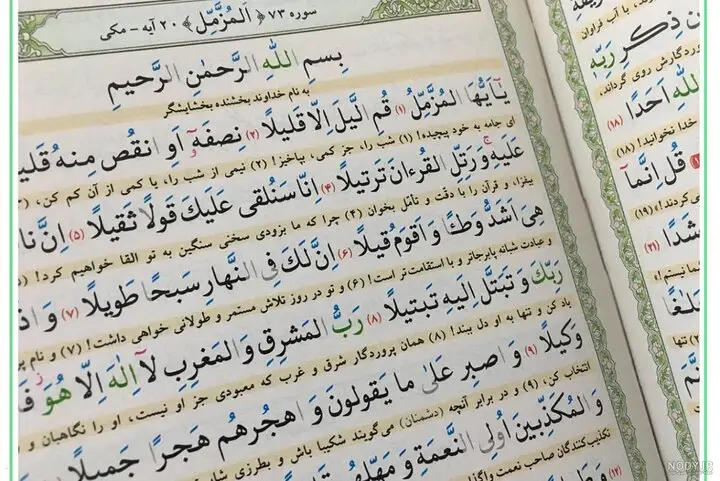 سوره ۷۳ ﴿اَلمُزَّمِّل﴾ ۲۰ آیه - مکی
بِسمِ اللهِ الرَّحمٰنِ الرَّحیمِ
به نام خداوند بخشنده بخشایشگر
یٰۤاَیُّهَا المُزَّمِّلُ (۱) قُمِ الَّیلَ اِلّا قَلیلًا (۲) نِصفَهٗۤ اَوِ انقُص مِنهُ قَلی
ای جامه به خود پیچیده! (۱) شب را، جز کمی، بپاخیز! (۲) نیمی از شب را، یا کمی از آن کم کن،
عَلَیهِ وَ رَتِّلِ القُرءانَ تَرتیلًا (۴) اِنّا سَنُلقی عَلَیكَ قَولًا ثَقیلًا (۵) اِنَّ نا
بیفزا، و قرآن را با دقّت و تأمّل بخوان (۴) چرا که ما بزودی سخنی سنگین به تو القا خواهیم کرد!
هِیَ اَشَدُّ وَطئًا وَ اَقوَمُ قیلًا (۶) اِنَّ لَكَ فِی النَّهارِ سَبحًا طَویلًا (۷) وَ اذ
و عبادت شبانه پابرجاتر و با استقامت‌تر است! (۶) و تو در روز تلاش مستمر و طولانی خواهی داشت! (۷) و نام
رَبِّكَ وَ تَبَتَّل اِلَیهِ تَبتیلًا (۸) رَبُّ المَشرِقِ وَ المَغرِبِ لاۤ اِلٰهَ اِلّا هُوَ فَ
یاد کن و تنها به او دل ببند! (۸) همان پروردگار شرق و غرب که معبودی جز او نیست، او را نگاهبان و
وَکیلًا (۹) وَ اصبِر عَلیٰ ما یَقولونَ وَ اهجُرهُم هَجرًا جَمیلًا
انتخاب کن، (۹) و در برابر آنچه (دشمنان) می‌گویند شکیبا باش و بطرزی
وَ المُکَذِّبینَ اُولِی النَّعمَةِ وَ مَهِّلهُم
تکذیب‌کنندگان صاحب نعمت واگذار
با آب فراوان
ن ذِکرِ رَبِّهٖ
روی گرداند،
اللهِ اَحَدًا (۱۸)
خدا نخوانید! (۱۸)
قُل اِنَّماۤ
(۱۹)
(۲۱)